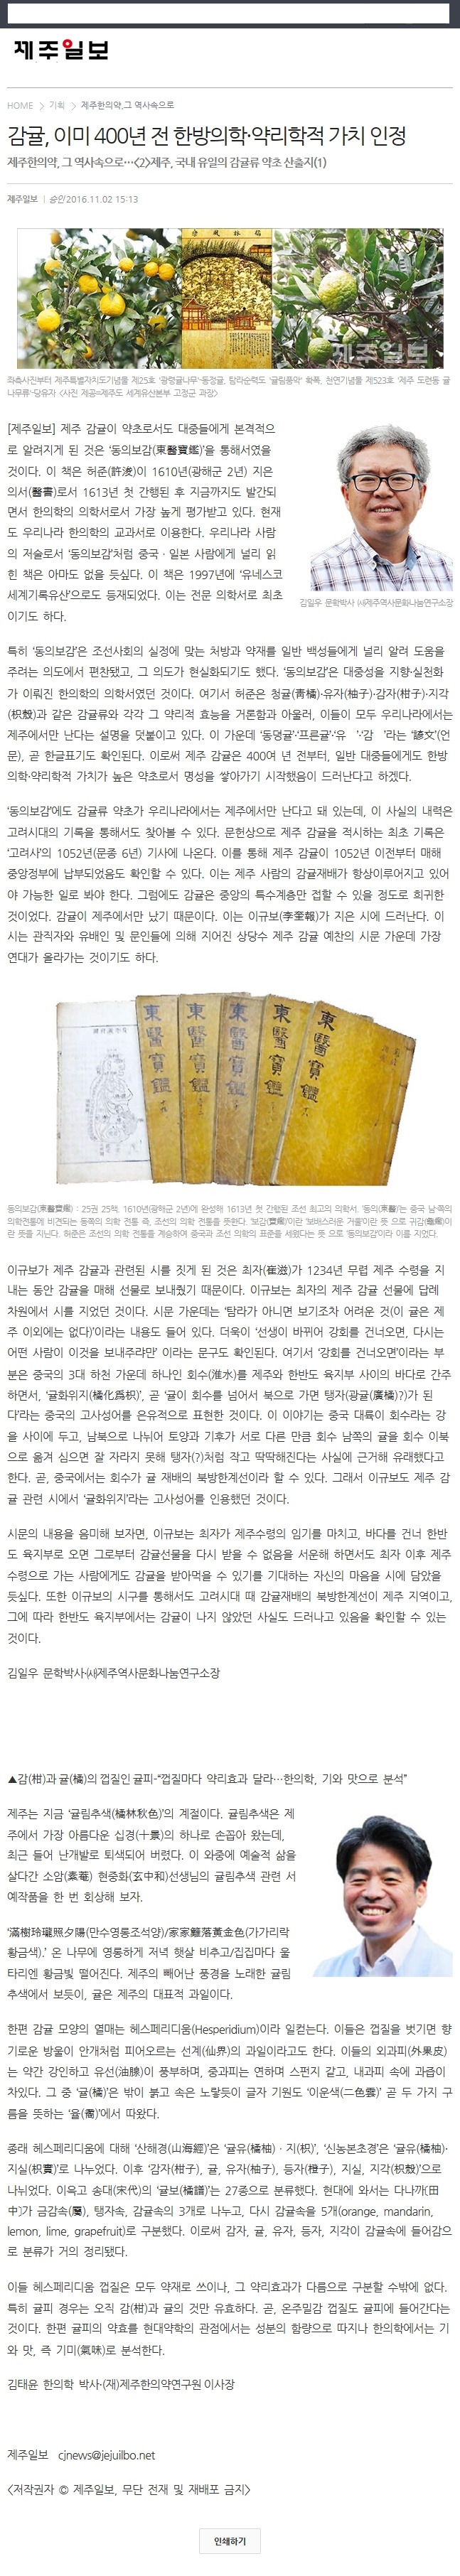 제주일보
HOME > 기획 > 제주한의약,그 역사속으로
감귤, 이미 400년 전 한방의학·약리학적 가치 인정
제주한의약, 그 역사속으로…<2>제주, 국내 유일의 감귤류 약초 산출지(1)
제주일보 | 승인 2016.11.02 15:13
제주일보
좌측사진부터 제주특별자치도기념물 제25호 '광령귤나무'-동정귤, 탐라순력도 '귤림풍악' 확폭, 천연기념물 제523호 '제주 도련동 귤
나무류'-당유자 <사진 제공=제주도 세계유산본부 고정군 과장>
[제주일보] 제주 감귤이 약초로서도 대중들에게 본격적으
로 알려지게 된 것은 '동의보감(東醫寶鑑)'을 통해서였을
것이다. 이 책은 허준(許浚)이 1610년(광해군 2년) 지은
의서(醫書)로서 1613년 첫 간행된 후 지금까지도 발간되
면서 한의학의 의학서로서 가장 높게 평가받고 있다. 현재
도 우리나라 한의학의 교과서로 이용한다. 우리나라 사람
의 저술로서 '동의보감'처럼 중국·일본 사람에게 널리 읽
힌 책은 아마도 없을 듯싶다. 이 책은 1997년에 '유네스코
세계기록유산'으로도 등재되었다. 이는 전문 의학서로 최초
이기도 하다.
김일우 문학박사 ㈔제주역사문화나눔연구소장
특히 '동의보감'은 조선사회의 실정에 맞는 처방과 약재를 일반 백성들에게 널리 알려 도움을
주려는 의도에서 편찬됐고, 그 의도가 현실화되기도 했다. '동의보감'은 대중성을 지향·실천화
가 이뤄진 한의학의 의학서였던 것이다. 여기서 허준은 청귤(靑橘)·유자(柚子)·감자(柑子)·지각
(枳殼)과 같은 감귤류와 각각 그 약리적 효능을 거론함과 아울러, 이들이 모두 우리나라에서는
제주에서만 난다는 설명을 덧붙이고 있다. 이 가운데 '동뎡귤'·'프른귤'·'유 '·'감 '라는 '諺文'(언
문), 곧 한글표기도 확인된다. 이로써 제주 감귤은 400여 년 전부터, 일반 대중들에게도 한방
의학·약리학적 가치가 높은 약초로서 명성을 쌓아가기 시작했음이 드러난다고 하겠다.
'동의보감'에도 감귤류 약초가 우리나라에서는 제주에서만 난다고 돼 있는데, 이 사실의 내력은
고려시대의 기록을 통해서도 찾아볼 수 있다. 문헌상으로 제주 감귤을 적시하는 최초 기록은
'고려사'의 1052년(문종 6년) 기사에 나온다. 이를 통해 제주 감귤이 1052년 이전부터 매해
중앙정부에 납부되었음도 확인할 수 있다. 이는 제주 사람의 감귤재배가 항상이루어지고 있어
야 가능한 일로 봐야 한다. 그럼에도 감귤은 중앙의 특수계층만 접할 수 있을 정도로 희귀한
것이었다. 감귤이 제주에서만 났기 때문이다. 이는 이규보(李奎報)가 지은 시에 드러난다. 이
시는 관직자와 유배인 및 문인들에 의해 지어진 상당수 제주 감귤 예찬의 시문 가운데 가장
연대가 올라가는 것이기도 하다.
東醫寶鑑
東醫寶鑑
東醫寶鑑
東醫寶鑑
東醫寶鑑
동의보감(東醫寶鑑) : 25권 25책. 1610년(광해군 2년)에 완성해 1613년 첫 간행된 조선 최고의 의학서. '동의(東醫)'는 중국 남·북의
의학전통에 비견되는 동쪽의 의학 전통 즉, 조선의 의학 전통을 뜻한다. '보감(寶鑑)'이란 '보배스러운 거울'이란 뜻 으로 귀감(龜鑑)이
란 뜻을 지닌다. 허준은 조선의 의학 전통을 계승하여 중국과 조선 의학의 표준을 세웠다는 뜻 으로 '동의보감'이라 이름 지었다.
이규보가 제주 감귤과 관련된 시를 짓게 된 것은 최자(崔滋)가 1234년 무렵 제주 수령을 지
내는 동안 감귤을 매해 선물로 보내줬기 때문이다. 이규보는 최자의 제주 감귤 선물에 답례
차원에서 시를 지었던 것이다. 시문 가운데는 '탐라가 아니면 보기조차 어려운 것(이 귤은 제
주 이외에는 없다)'이라는 내용도 들어 있다. 더욱이 '선생이 바뀌어 강회를 건너오면, 다시는
어떤 사람이 이것을 보내주랴만' 이라는 문구도 확인된다. 여기서 '강회를 건너오면'이라는 부
분은 중국의 3대 하천 가운데 하나인 회수(淮水)를 제주와 한반도 육지부 사이의 바다로 간주
하면서, '귤화위지(橘化爲枳)', 곧 '귤이 회수를 넘어서 북으로 가면 탱자(광귤(廣橘)?)가 된
다'라는 중국의 고사성어를 은유적으로 표현한 것이다. 이 이야기는 중국 대륙이 회수라는 강
을 사이에 두고, 남북으로 나뉘어 토양과 기후가 서로 다른 만큼 회수 남쪽의 귤을 회수 이북
으로 옮겨 심으면 잘 자라지 못해 탱자(?)처럼 작고 딱딱해진다는 사실에 근거해 유래했다고
한다. 곧, 중국에서는 회수가 귤 재배의 북방한계선이라 할 수 있다. 그래서 이규보도 제주 감
귤 관련 시에서 '귤화위지'라는 고사성어를 인용했던 것이다.
시문의 내용을 음미해 보자면, 이규보는 최자가 제주수령의 임기를 마치고, 바다를 건너 한반
도 육지부로 오면 그로부터 감귤선물을 다시 받을 수 없음을 서운해 하면서도 최자 이후 제주
수령으로 가는 사람에게도 감귤을 받아먹을 수 있기를 기대하는 자신의 마음을 시에 담았을
듯싶다. 또한 이규보의 시구를 통해서도 고려시대 때 감귤재배의 북방한계선이 제주 지역이고,
그에 따라 한반도 육지부에서는 감귤이 나지 않았던 사실도 드러나고 있음을 확인할 수 있는
것이다.
김일우 문학박사·㈔제주역사문화나눔연구소장
▲감(柑)과 귤(橘)의 껍질인 귤피-“껍질마다 약리효과 달라…한의학, 기와 맛으로 분석”
제주는 지금 '귤림추색(橘林秋色)'의 계절이다. 귤림추색은 제
주에서 가장 아름다운 십경(十景)의 하나로 손꼽아 왔는데,
최근 들어 난개발로 퇴색되어 버렸다. 이 와중에 예술적 삶을
살다간 소암(素菴) 현중화(玄中和)선생님의 귤림추색 관련 서
예작품을 한 번 회상해 보자.
'滿樹玲瓏照夕陽(만수영롱조석양)/家家籬落黃金色(가가리락
황금색).' 온 나무에 영롱하게 저녁 햇살 비추고/집집마다 울
타리엔 황금빛 떨어진다. 제주의 빼어난 풍경을 노래한 귤림
추색에서 보듯이, 귤은 제주의 대표적 과일이다.
한편 감귤 모양의 열매는 헤스페리디움(Hesperidium)이라 일컫는다. 이들은 껍질을 벗기면 향
기로운 방울이 안개처럼 피어오르는 선계(仙界)의 과일이라고도 한다. 이들의 외과피(外果皮)
는 약간 강인하고 유선(油腺)이 풍부하며, 중과피는 연하며 스펀지 같고, 내과피 속에 과즙이
차있다. 그 중 '귤(橘)'은 밖이 붉고 속은 노랗듯이 글자 기원도 '이운색(二色雲)' 곧 두 가지 구
름을 뜻하는 '율(矞)'에서 따왔다.
종래 헤스페리디움에 대해 '산해경(山海經)'은 '귤유(橘柚)·지(枳)', '신농본초경'은 '귤유(橘柚)·
지실(枳實)'로 나누었다. 이후 '감자(柑子), 귤, 유자(柚子), 등자(橙子), 지실, 지각(枳殼)'으로
나뉘었다. 이윽고 송대(宋代)의 '귤보(橘譜)'는 27종으로 분류했다. 현대에 와서는 다나까[田
中]가 금감속(屬), 탱자속, 감귤속의 3개로 나누고, 다시 감귤속을 5개(orange, mandarin,
lemon, lime, grapefruit)로 구분했다. 이로써 감자, 귤, 유자, 등자, 지각이 감귤속에 들어감으
로 분류가 거의 정리됐다.
이들 헤스페리디움 껍질은 모두 약재로 쓰이나, 그 약리효과가 다름으로 구분할 수밖에 없다.
특히 귤피 경우는 오직 감(柑)과 귤의 것만 유효하다. 곧, 온주밀감 껍질도 귤피에 들어간다는
것이다. 한편 귤피의 약효를 현대약학의 관점에서는 성분의 함량으로 따지나 한의학에서는 기
와 맛, 즉 기미(氣味)로 분석한다.
김태윤 한의학 박사·(재)제주한의약연구원 이사장
제주일보 cjnews@jejuilbo.net
<저작권자 © 제주일보, 무단 전재 및 재배포 금지>
인쇄하기